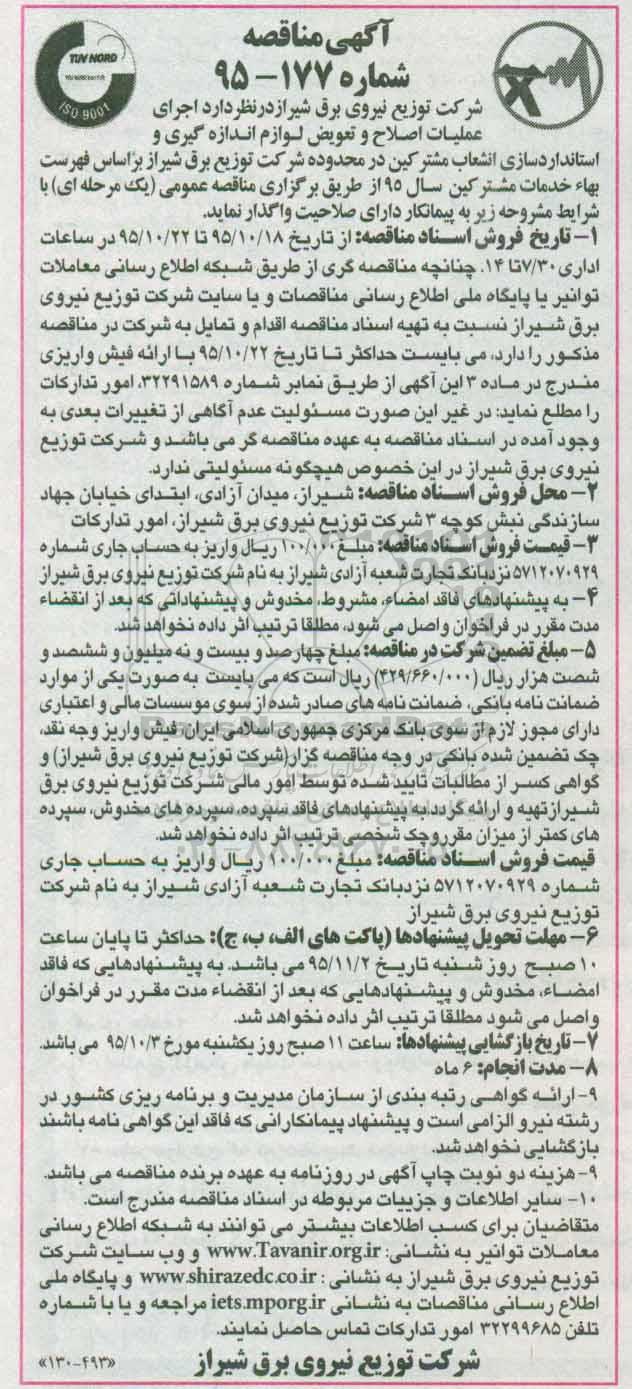 آگهی مناقصه
شماره ۱۷۷ - ۹۵
TUV NORD
ISO 9001
شرکت توزیع نیروی برق شیراز درنظر دارد اجرای
عملیات اصلاح و تعویض لوازم اندازه گیری و
استانداردسازی انشعاب مشترکین در محدوده شرکت توزیع برق شیراز براساس فهرست
بهاء خدمات مشترکین سال ۹۵ از طریق برگزاری مناقصه عمومی (یک مرحله ای) با
شرایط مشروحه زیر به پیمانکار دارای صلاحیت واگذار نماید.
۱- تاریخ فروش اسناد مناقصه: از تاریخ ۹۵/۱۰/۱۸ تا ۹۵/۱۰/۲۲ در ساعات
اداری ۷/۳۰ تا ۱۴. چنانچه مناقصه گری از طریق شبکه اطلاع رسانی معاملات
توانیر یا پایگاه ملی اطلاع رسانی مناقصات و یا سایت شرکت توزیع نیروی
برق شیراز نسبت به تهیه اسناد مناقصه اقدام و تمایل به شرکت در مناقصه
مذکور را دارد، می بایست حداکثر تا تاریخ ۹۵/۱۰/۲۲ با ارائه فیش واریزی
مندرج در ماده ۳ این آگهی از طریق نمابر شماره ۳۲۲۹۱۵۸۹، امور تدارکات
را مطلع نماید: در غیر این صورت مسئولیت عدم آگاهی از تغییرات بعدی به
وجود آمده در اسناد مناقصه به عهده مناقصه گر می باشد و شرکت توزیع
نیروی برق شیراز در این خصوص هیچگونه مسئولیتی ندارد.
۲- محل فروش اسناد مناقصه: شیراز، میدان آزادی، ابتدای خیابان جهاد
سازندگی نبش کوچه ۳ شرکت توزیع نیروی برق شیراز، امور تدارکات
۳- قیمت فروش اسناد مناقصه: مبلغ ۱۰۰/۰۰۰ ریال واریز به حساب جاری شماره
۵۷۱۲۰۷۰۹۲۹ نزد بانک تجارت شعبه آزادی شیراز به نام شرکت توزیع نیروی برق شیراز
۴- به پیشنهادهای فاقد امضاء، مشروط، مخدوش و پیشنهاداتی که بعد از انقضاء
مدت مقرر در فراخوان واصل می شود، مطلقا ترتیب اثر داده نخواهد شد.
۵- مبلغ تضمین شرکت در مناقصه: مبلغ چهارصد و بیست و نه میلیون و ششصد و
شصت هزار ریال (۴۲۹/۶۶۰/۰۰۰) ریال است که می بایست به صورت یکی از موارد
ضمانت نامه بانکی، ضمانت نامه های صادر شده از سوی موسسات مالی و اعتباری
دارای مجوز لازم از سوی بانک مرکزی جمهوری اسلامی ایران، فیش واریز وجه نقد،
چک تضمین شده بانکی در وجه مناقصه گزار(شرکت توزیع نیروی برق شیراز) و
گواهی کسر از مطالبات تایید شده توسط امور مالی شرکت توزیع نیروی برق
شیراز تهیه و ارائه گردد.به پیشنهادهای فاقد سپرده، سپرده های مخدوش، سپرده
های کمتر از میزان مقرر وچک شخصی ترتیب اثر داده نخواهد شد.
قیمت فروش اسناد مناقصه: مبلغ ۱۰۰/۰۰۰ ریال واریز به حساب جاری
شماره ۵۷۱۲۰۷۰۹۲۹ نزد بانک تجارت شعبه آزادی شیراز به نام شرکت
توزیع نیروی برق شیراز
۶- مهلت تحویل پیشنهادها (پاکت های الف، ب، ج): حداکثر تا پایان ساعت
۱۰ صبح روز شنبه تاریخ ۹۵/۱۱/۲ می باشد. به پیشنهادهایی که فاقد
امضاء، مخدوش و پیشنهادهایی که بعد از انقضاء مدت مقرر در فراخوان
واصل می شود مطلقا ترتیب اثر داده نخواهد شد.
۷- تاریخ بازگشایی پیشنهادها: ساعت ۱۱ صبح روز یکشنبه مورخ ۹۵/۱۰/۳ می باشد.
۸- مدت انجام: ۶ ماه
۹- ارائه گواهی رتبه بندی از سازمان مدیریت و برنامه ریزی کشور در
رشته نیرو الزامی است و پیشنهاد پیمانکارانی که فاقد این گواهی نامه باشند
بازگشایی نخواهد شد.
۹- هزینه دو نوبت چاپ آگهی در روزنامه به عهده برنده مناقصه می باشد.
۱۰- سایر اطلاعات و جزییات مربوطه در اسناد مناقصه مندرج است.
متقاضیان برای کسب اطلاعات بیشتر می توانند به شبکه اطلاع رسانی
معاملات توانیر به نشانی: www.Tavanir.org.ir و وب سایت شرکت
توزیع نیروی برق شیراز به نشانی: www.shirazedc.co.ir و پایگاه ملی
اطلاع رسانی مناقصات به نشانی iets.mporg.ir مراجعه و یا با شماره
تلفن ۳۲۲۹۹۶۸۵ امور تدارکات تماس حاصل نمایند.
شرکت توزیع نیروی برق شیراز
«۱۳۰-۴۹۳»